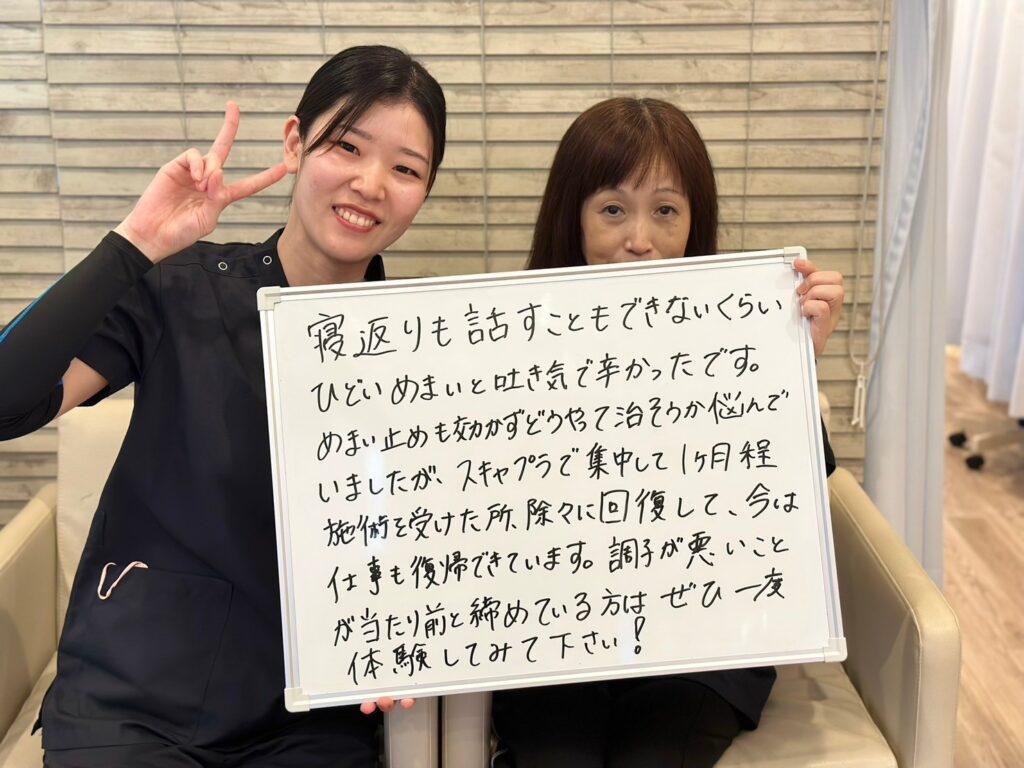 寝返りも話すこともできないくらい
ひどいめまいと吐き気で辛かったです。
めまい止めも効かずどうやって治そうか悩んで
いましたが、スキャプラで集中して1ヶ月程
施術を受けた所、除々に回復して、今は
仕事も復帰できています。調子が悪いこと
が当たり前と締めている方はぜひ一度
体験してみて下さい!